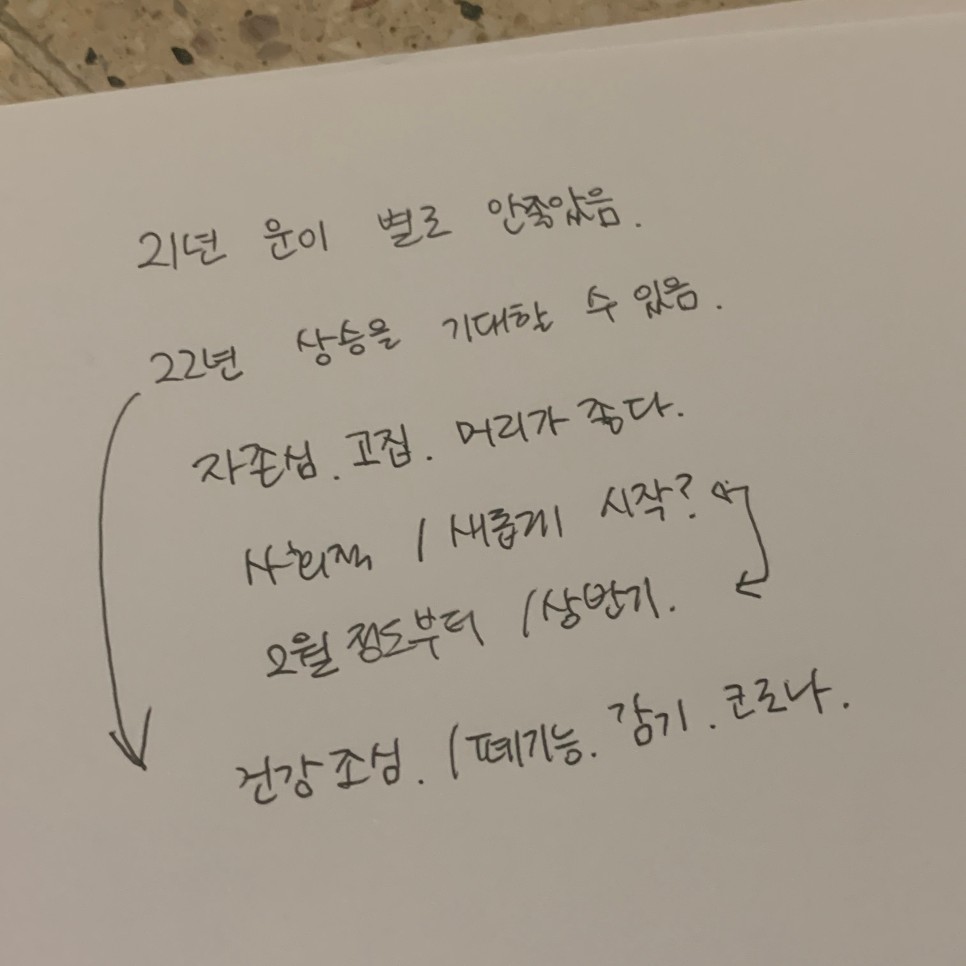 21년 운이 별로 안좋았음.
22년 상승을 기대할 수 있음.
자존심. 고집. 머리가 좋다.
사회적 / 새롭게 시작?
2월 정도부터 / 상반기.
건강조심. / 폐기능. 감기. 코로나.